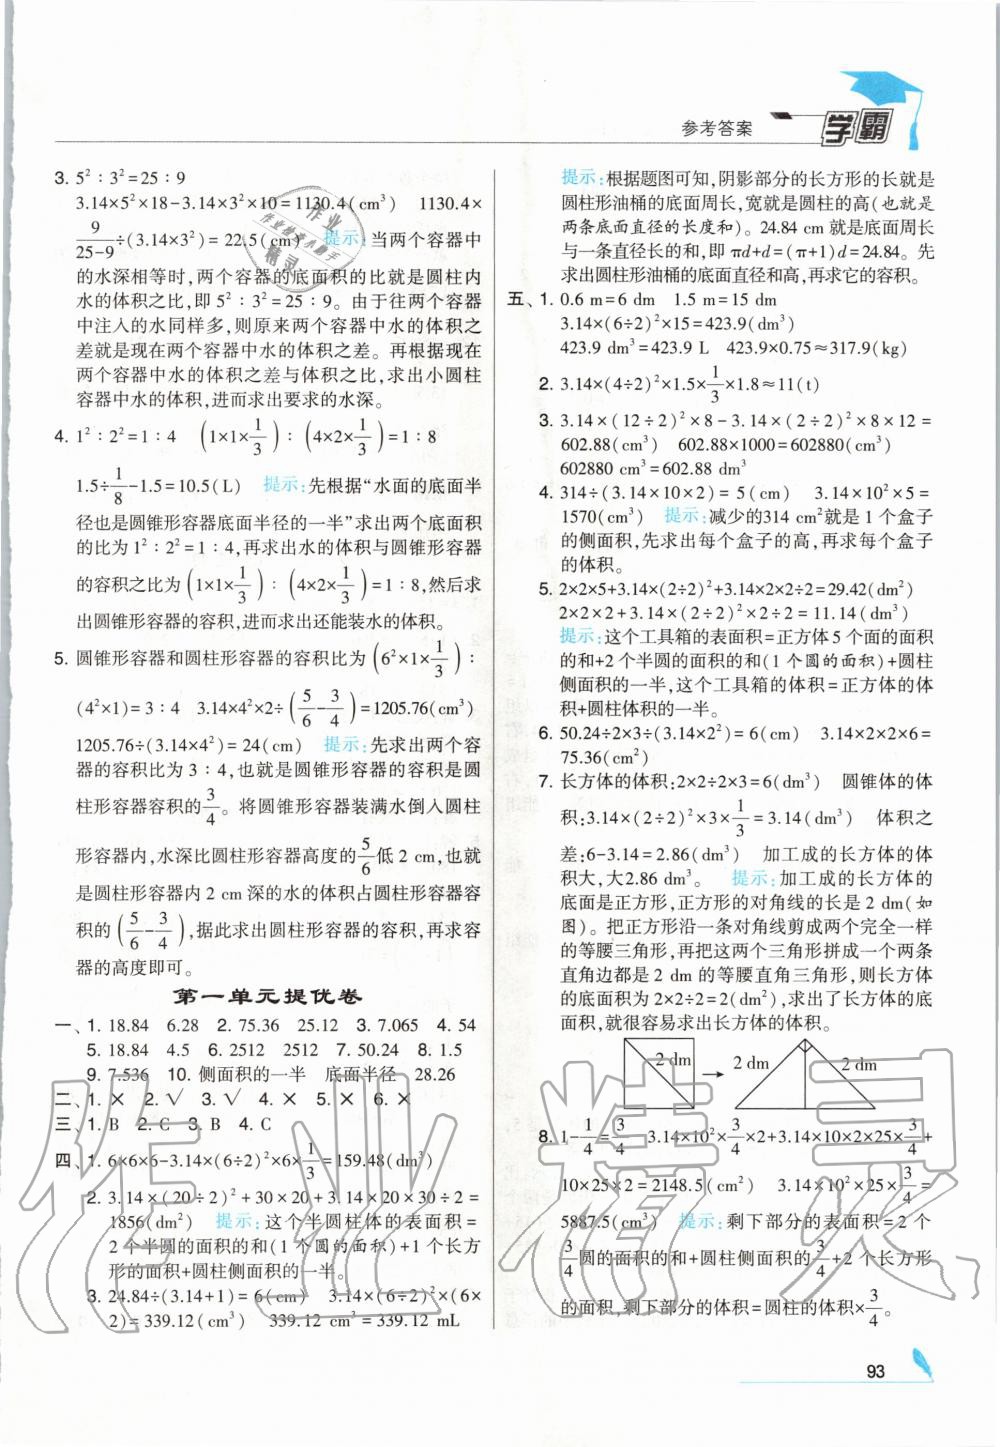 参考答案 学霸
3. 5²∶3²=25∶9
3.14×5²×18-3.14×3²×10=1130.4(cm³) 1130.4×
9/(25-9)÷(3.14×3²)=22.5(cm) 提示:当两个容器中
的水深相等时,两个容器的底面积的比就是圆柱内
水的体积之比,即 5²∶3²=25∶9。由于往两个容器
中注入的水同样多,则原来两个容器中水的体积之
差就是现在两个容器中水的体积之差。再根据现在
两个容器中水的体积之差与体积之比,求出小圆柱
容器中水的体积,进而求出要求的水深。
4. 1²∶2²=1∶4 (1×1×1/3)∶(4×2×1/3)=1∶8
1.5÷1/8-1.5=10.5(L) 提示:先根据“水面的底面半
径也是圆锥形容器底面半径的一半”求出两个底面积
的比为 1²∶2²=1∶4,再求出水的体积与圆锥形容器
的容积之比为(1×1×1/3)∶(4×2×1/3)=1∶8,然后求
出圆锥形容器的容积,进而求出还能装水的体积。
5. 圆锥形容器和圆柱形容器的容积比为(6²×1×1/3)∶
(4²×1)=3∶4 3.14×4²×2÷(5/6-3/4)=1205.76(cm³)
1205.76÷(3.14×4²)=24(cm) 提示:先求出两个容
器的容积比为 3∶4,也就是圆锥形容器的容积是圆
柱形容器容积的3/4。将圆锥形容器装满水倒入圆柱
形容器内,水深比圆柱形容器高度的5/6低 2 cm,也就
是圆柱形容器内 2 cm 深的水的体积占圆柱形容器容
积的(5/6-3/4),据此求出圆柱形容器的容积,再求容
器的高度即可。
第一单元提优卷
一、1. 18.84 6.28 2. 75.36 25.12 3. 7.065 4. 54
5. 18.84 4.5 6. 2512 2512 7. 50.24 8. 1.5
9. 7.536 10. 侧面积的一半 底面半径 28.26
二、1. × 2. √ 3. √ 4. × 5. × 6. ×
三、1. B 2. C 3. B 4. C
四、1. 6×6×6-3.14×(6÷2)²×6×1/3=159.48(dm³)
2. 3.14×(20÷2)²+30×20+3.14×20×30÷2=
1856(dm²) 提示:这个半圆柱体的表面积=
2 个半圆的面积的和(1 个圆的面积)+1 个长方
形的面积+圆柱侧面积的一半。
3. 24.84÷(3.14+1)=6(cm) 3.14×(6÷2)²×(6×
2)=339.12(cm³) 339.12 cm³=339.12 mL
提示:根据题图可知,阴影部分的长方形的长就是
圆柱形油桶的底面周长,宽就是圆柱的高(也就是
两条底面直径的长度和)。24.84 cm 就是底面周长
与一条直径长的和,即 πd+d=(π+1)d=24.84。先
求出圆柱形油桶的底面直径和高,再求它的容积。
五、1. 0.6 m=6 dm 1.5 m=15 dm
3.14×(6÷2)²×15=423.9(dm³)
423.9 dm³=423.9 L 423.9×0.75≈317.9(kg)
2. 3.14×(4÷2)²×1.5×1/3×1.8≈11(t)
3. 3.14×(12÷2)²×8-3.14×(2÷2)²×8×12=
602.88(cm³) 602.88×1000=602880(cm³)
602880 cm³=602.88 dm³
4. 314÷(3.14×10×2)=5(cm) 3.14×10²×5=
1570(cm³) 提示:减少的314 cm²就是 1 个盒子
的侧面积,先求出每个盒子的高,再求每个盒子
的体积。
5. 2×2×5+3.14×(2÷2)²+3.14×2×2÷2=29.42(dm²)
2×2×2+3.14×(2÷2)²×2÷2=11.14(dm³)
提示:这个工具箱的表面积=正方体 5 个面的面积
的和+2 个半圆的面积的和(1 个圆的面积)+圆柱
侧面积的一半,这个工具箱的体积=正方体的体
积+圆柱体积的一半。
6. 50.24÷2×3÷(3.14×2²)=6(cm) 3.14×2×2×6=
75.36(cm²)
7. 长方体的体积:2×2÷2×3=6(dm³) 圆锥体的体
积:3.14×(2÷2)²×3×1/3=3.14(dm³) 体积之
差:6-3.14=2.86(dm³) 加工成的长方体的体
积大,大2.86 dm³。 提示:加工成的长方体的
底面是正方形,正方形的对角线的长是 2 dm(如
图)。把正方形沿一条对角线剪成两个完全一样
的等腰三角形,再把这两个三角形拼成一个两条
直角边都是 2 dm 的等腰直角三角形,则长方体的
底面积为 2×2÷2=2(dm²),求出了长方体的底
面积,就很容易求出长方体的体积。
2 dm 2 dm 2 dm
8. 1-1/4=3/4 3.14×10²×3/4×2+3.14×10×2×25×3/4+
10×25×2=2148.5(cm²) 3.14×10²×25×3/4=
5887.5(cm³) 提示:剩下部分的表面积=2 个
3/4圆的面积的和+圆柱侧面积的3/4+2 个长方形
的面积,剩下部分的体积=圆柱的体积×3/4。
93
作业精灵
作业
作业检查小助手
精灵